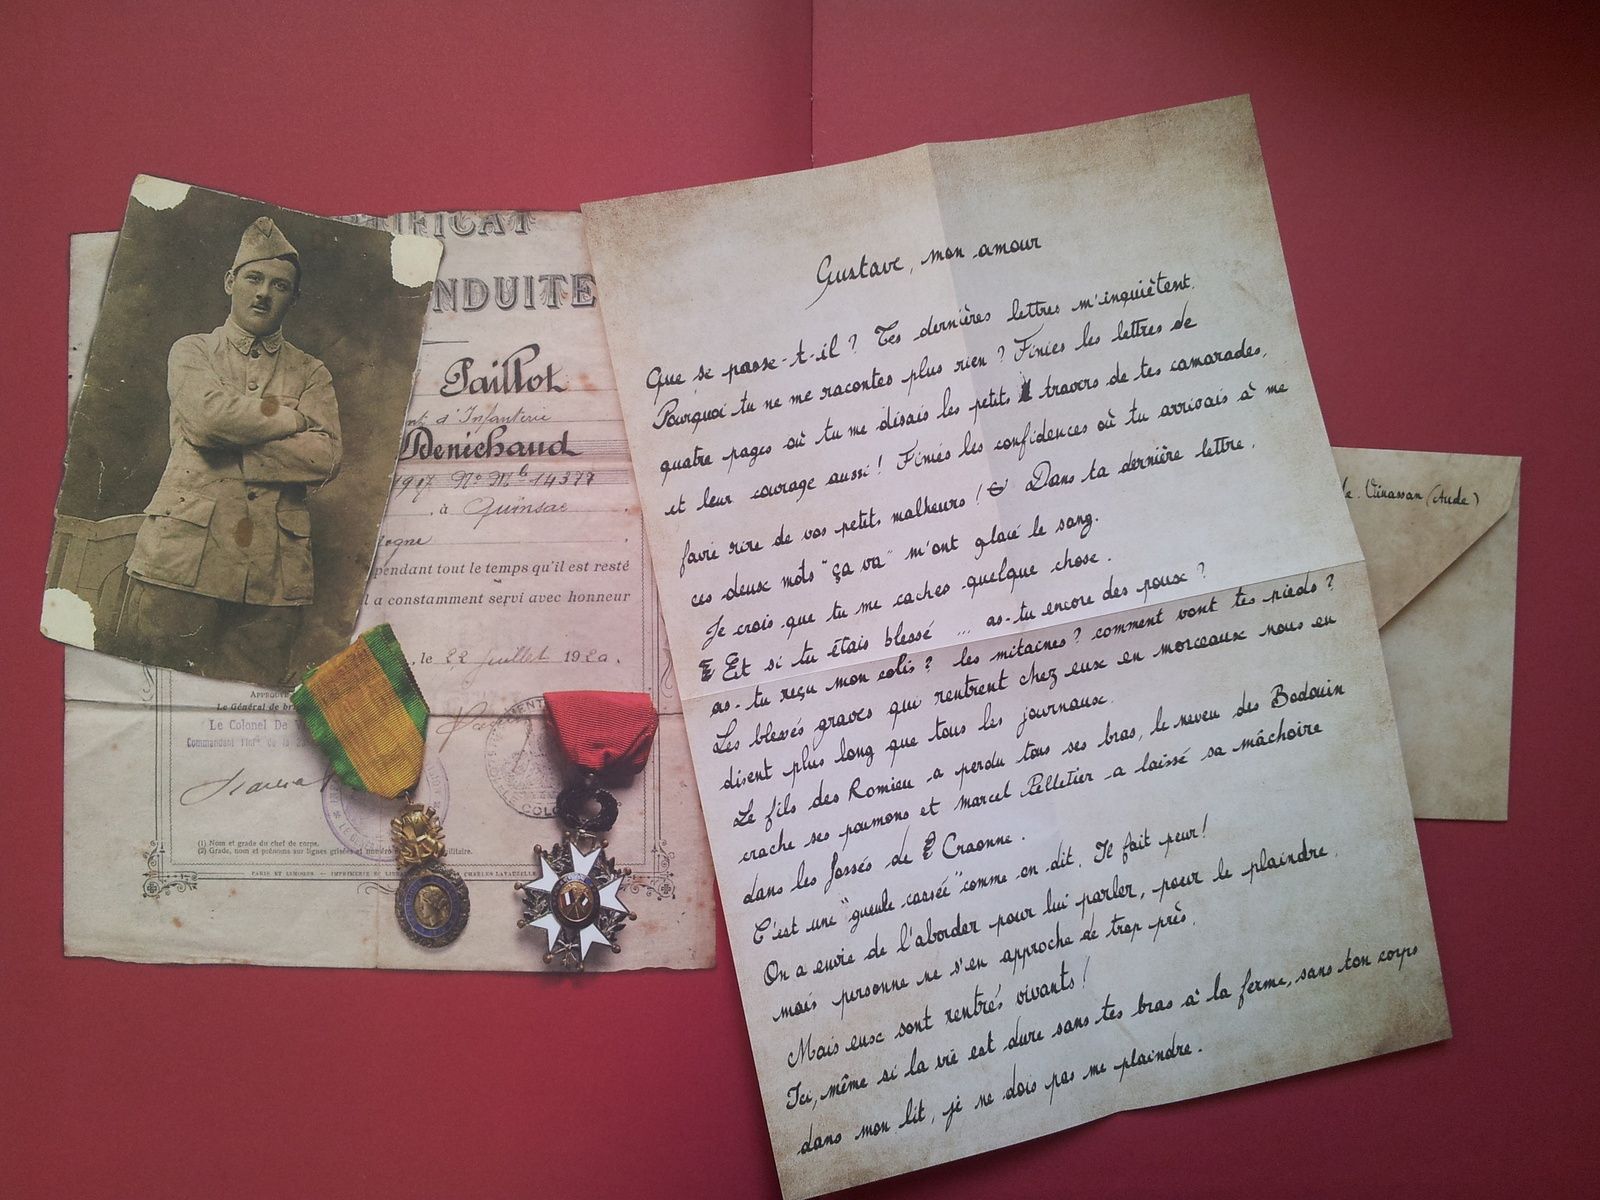 TIFICAT
NDUITE
Paillot
nt d'Infanterie
Denichaud
1917 No Mle 14377
, à Quinsac
ogne
pendant tout le temps qu'il est resté
l a constamment servi avec honneur
, le 22 juillet 1920.
APPROUV
Le Général de br
Le Colonel De V
Commandant l'Inf. de la
(1) Nom et grade du chef de corps.
(2) Grade, nom et prénoms sur lignes grisées et numéro militaire.
PARIS ET LIMOGES. — IMPRIMERIE CHARLES LAVAUZELLE
Gustave, mon amour
Que se passe-t-il ? Tes dernières lettres m'inquiètent.
Pourquoi tu ne me racontes plus rien ? Finies les lettres de
quatre pages où tu me disais les petits travers de tes camarades,
et leur courage aussi ! Finies les confidences où tu arrivais à me
faire rire de vos petits malheurs ! Dans ta dernière lettre,
ces deux mots "ça va" m'ont glacé le sang.
Je crois que tu me caches quelque chose.
Et si tu étais blessé ... as-tu encore des poux ?
as-tu reçu mon colis ? les mitaines ? comment vont tes pieds ?
Les blessés graves qui rentrent chez eux en morceaux nous en
disent plus long que tous les journaux.
Le fils des Romieu a perdu tous ses bras, le neveu des Bodouin
crache ses poumons et Marcel Pelletier a laissé sa mâchoire
dans les fossés de Craonne.
C'est une "gueule cassée" comme on dit. Il fait peur !
On a envie de l'aborder pour lui parler, pour le plaindre,
mais personne ne s'en approche de trop près.
Mais eux sont rentrés vivants !
Ici, même si la vie est dure sans tes bras à la ferme, sans ton corps
dans mon lit, je ne dois pas me plaindre.
de Vinassan (Aude)